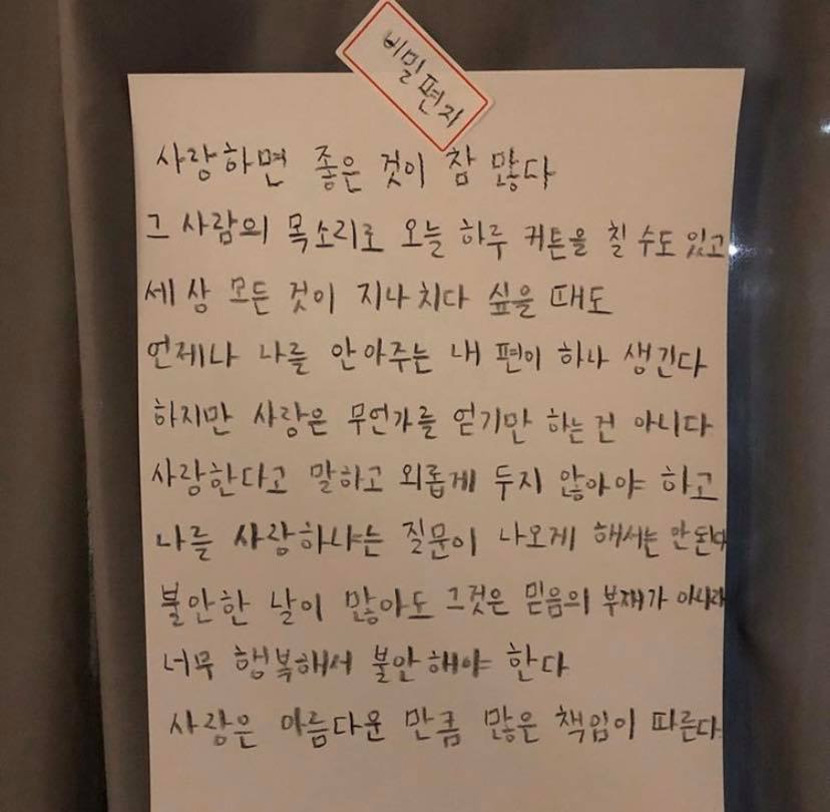 비밀편지
사랑하면 좋은 것이 참 많다
그 사람의 목소리로 오늘 하루 커튼을 칠 수도 있고
세상 모든 것이 지나치다 싶을 때도
언제나 나를 안아주는 내 편이 하나 생긴다
하지만 사랑은 무언가를 얻기만 하는 건 아니다
사랑한다고 말하고 외롭게 두지 않아야 하고
나를 사랑하냐는 질문이 나오게 해서는 안된다
불안한 날이 많아도 그것은 믿음의 부재가 아니라
너무 행복해서 불안해야 한다
사랑은 아름다운 만큼 많은 책임이 따른다